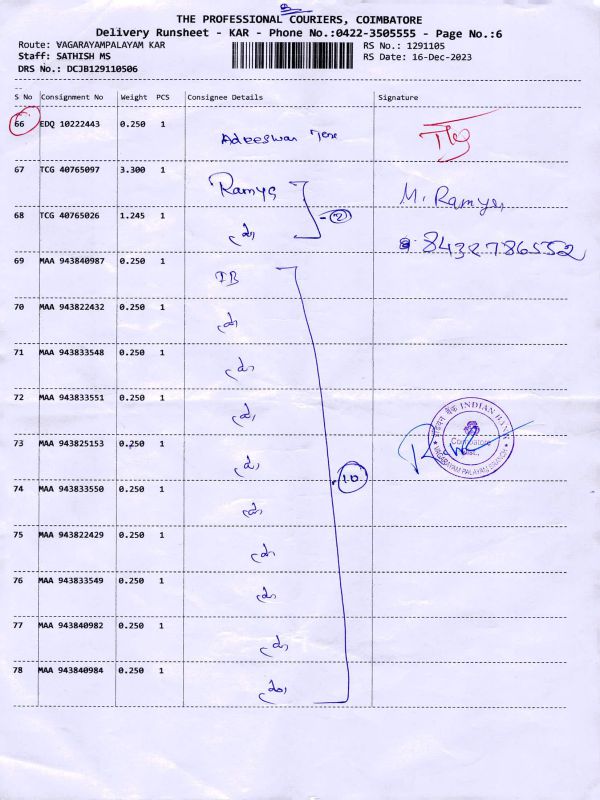 THE PROFESSIONAL COURIERS, COIMBATORE
Delivery Runsheet - KAR - Phone No.:0422-3505555 - Page No.:6
Route: VAGARAYAMPALAYAM KAR
RS No.: 1291105
Staff: SATHISH MS
RS Date: 16-Dec-2023
DRS No.: DCJB129110506
S No Consignment No Weight PCS Consignee Details Signature
66 EDQ 10222443 0.250 1
67 TCG 40765097 3.300 1 Ramya M. Ramya,
68 TCG 40765026 1.245 1 2 8432786552
69 MAA 943840987 0.250 1 IB
70 MAA 943822432 0.250 1
71 MAA 943833548 0.250 1
72 MAA 943833551 0.250 1
73 MAA 943825153 0.250 1
74 MAA 943833550 0.250 1 10
75 MAA 943822429 0.250 1
76 MAA 943833549 0.250 1
77 MAA 943840982 0.250 1
78 MAA 943840984 0.250 1
इंडियन बैंक INDIAN BANK
Coimbatore
Dist.,
VAGARAYAM PALAYAM BRANCH